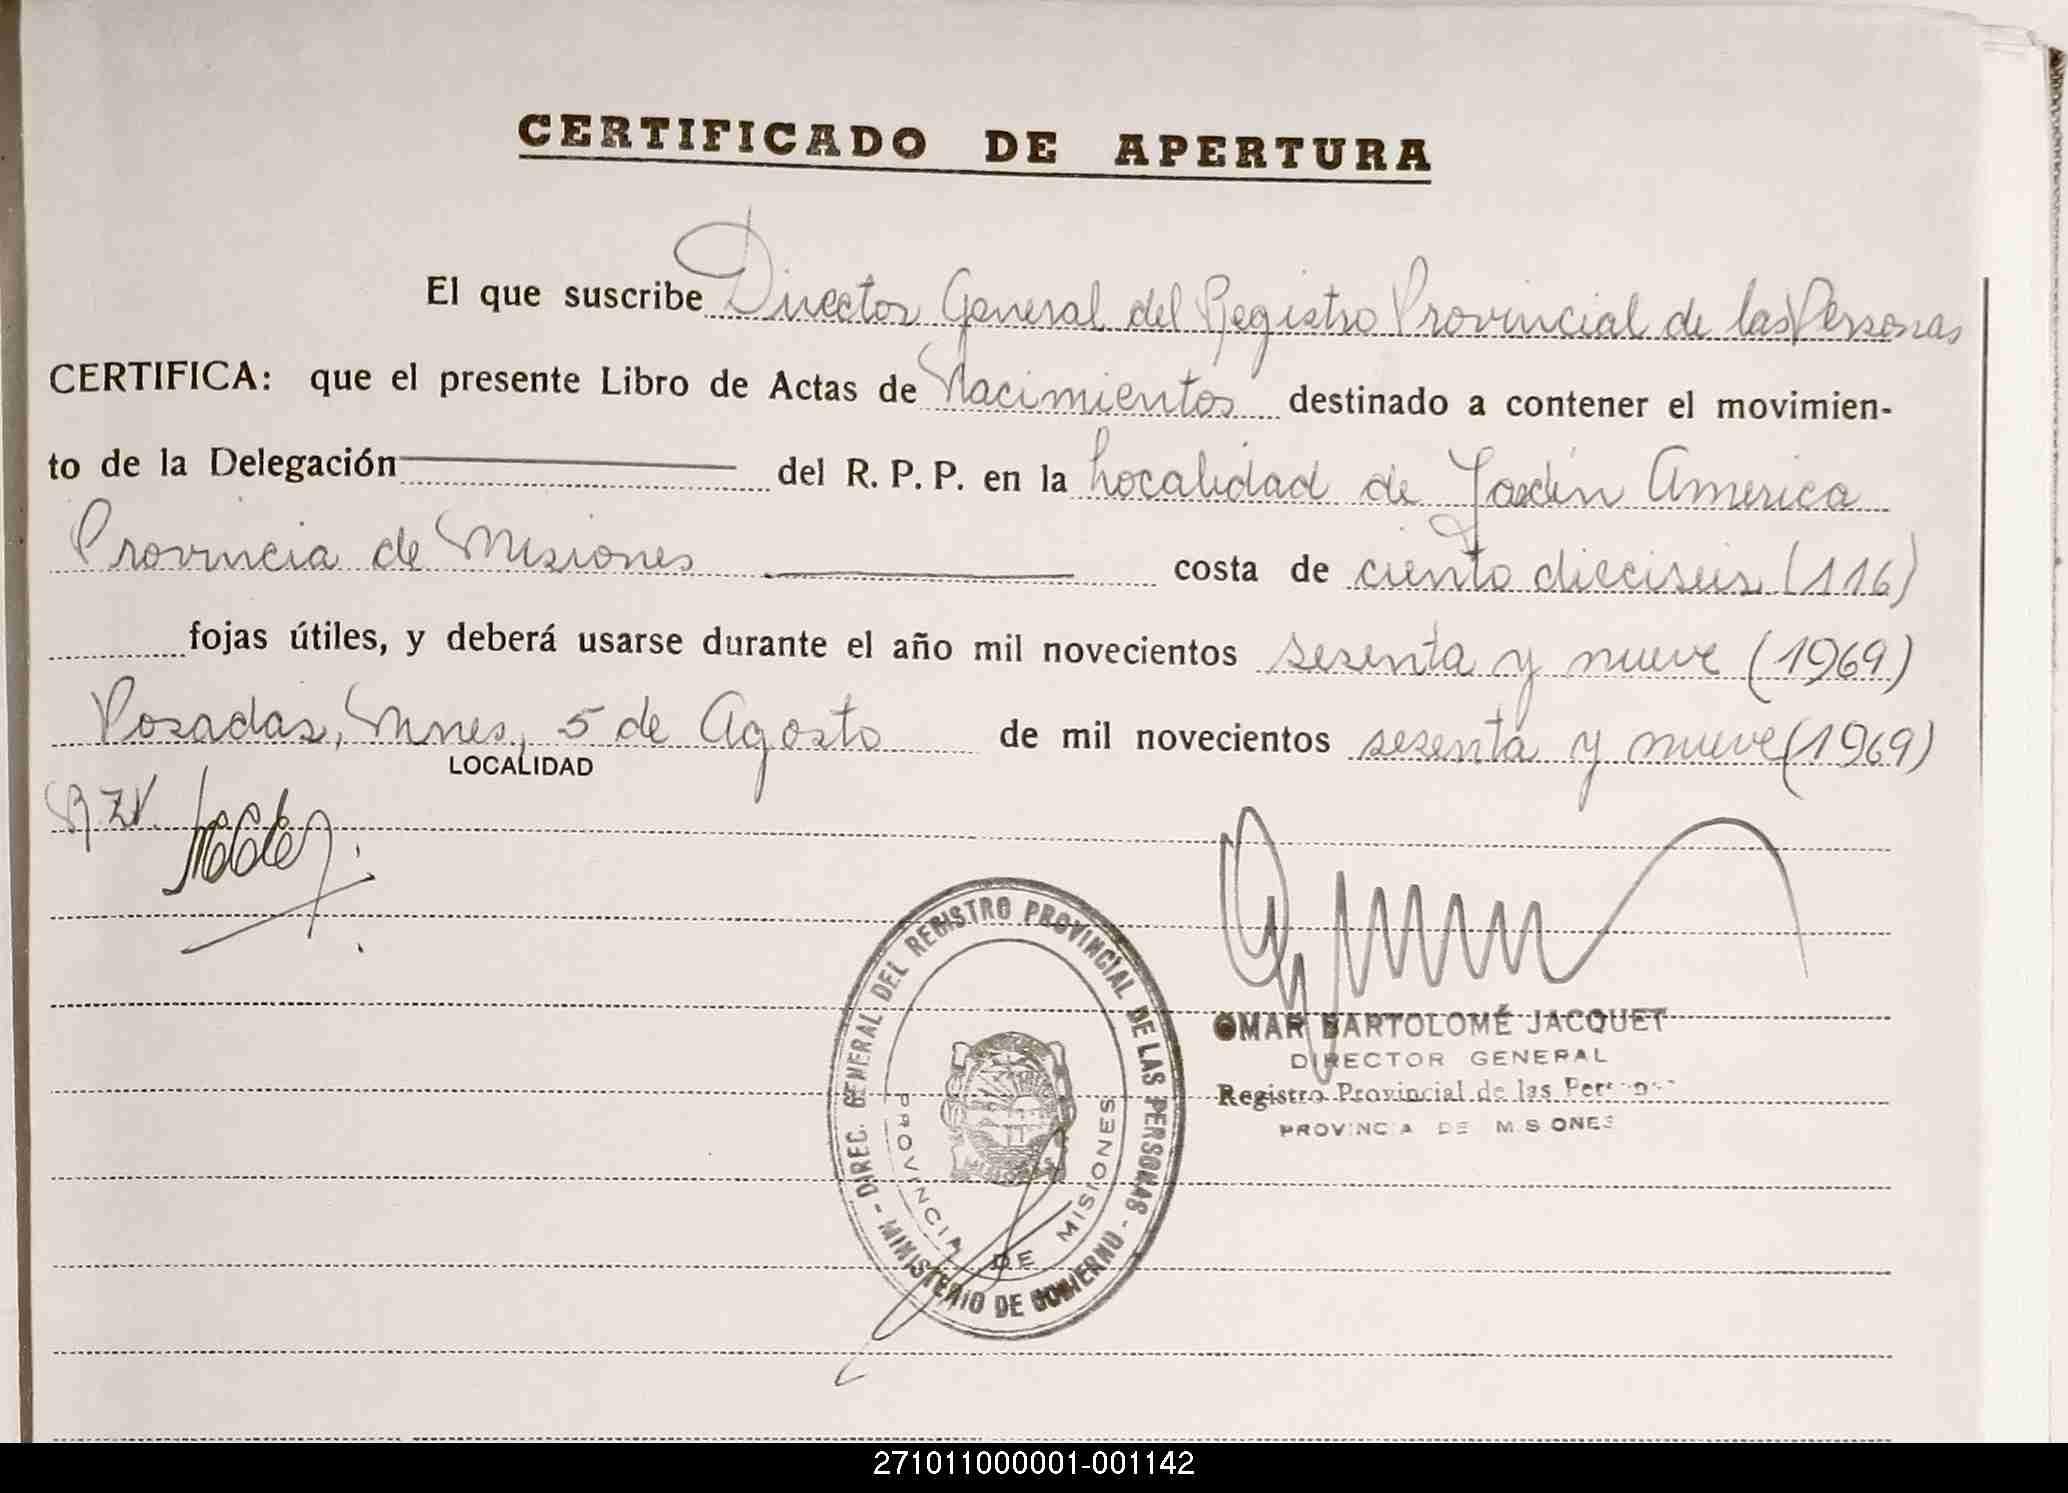 CERTIFICADO DE APERTURA
El que suscribe Director General del Registro Provincial de las Personas
CERTIFICA: que el presente Libro de Actas de Nacimientos destinado a contener el movimien-
to de la Delegación del R. P. P. en la Localidad de Jardín America
Provincia de Misiones costa de ciento dieciseis (116)
fojas útiles, y deberá usarse durante el año mil novecientos sesenta y nueve (1969)
Posadas, Mnes, 5 de Agosto de mil novecientos sesenta y nueve (1969)
LOCALIDAD
OMAR BARTOLOMÉ JACQUET
DIRECTOR GENERAL
Registro Provincial de las
PROVINCIA DE MISIONES
DIREC. GENERAL DEL REGISTRO PROVINCIAL DE LAS PERSONAS - MINISTERIO DE GOBIERNO -
PROVINCIA DE MISIONES
MISIONES
271011000001-001142